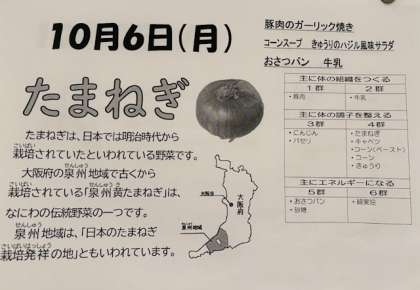 10月6日(月)
たまねぎ
たまねぎは、日本では明治時代から
さいばい
栽培されていたといわれている野菜です。
せんしゅう
大阪府の泉州地域で古くから
さいばい せんしゅうき
栽培されている「泉州黄たまねぎ」は、
なにわの伝統野菜の一つです。
せんしゅう
泉州地域は、「日本のたまねぎ
さいばいはっしょう
栽培発祥の地」ともいわれています。
大阪市
大阪府
泉州地域
豚肉のガーリック焼き
コーンスープ きゅうりのバジル風味サラダ
おさつパン 牛乳
主に体の組織をつくる
1群 2群
・豚肉 ・牛乳
主に体の調子を整える
3群 4群
・にんじん ・たまねぎ
・パセリ ・キャベツ
・コーン(ペースト)
・コーン
・きゅうり
主にエネルギーになる
5群 6群
・おさつパン ・綿実油
・砂糖